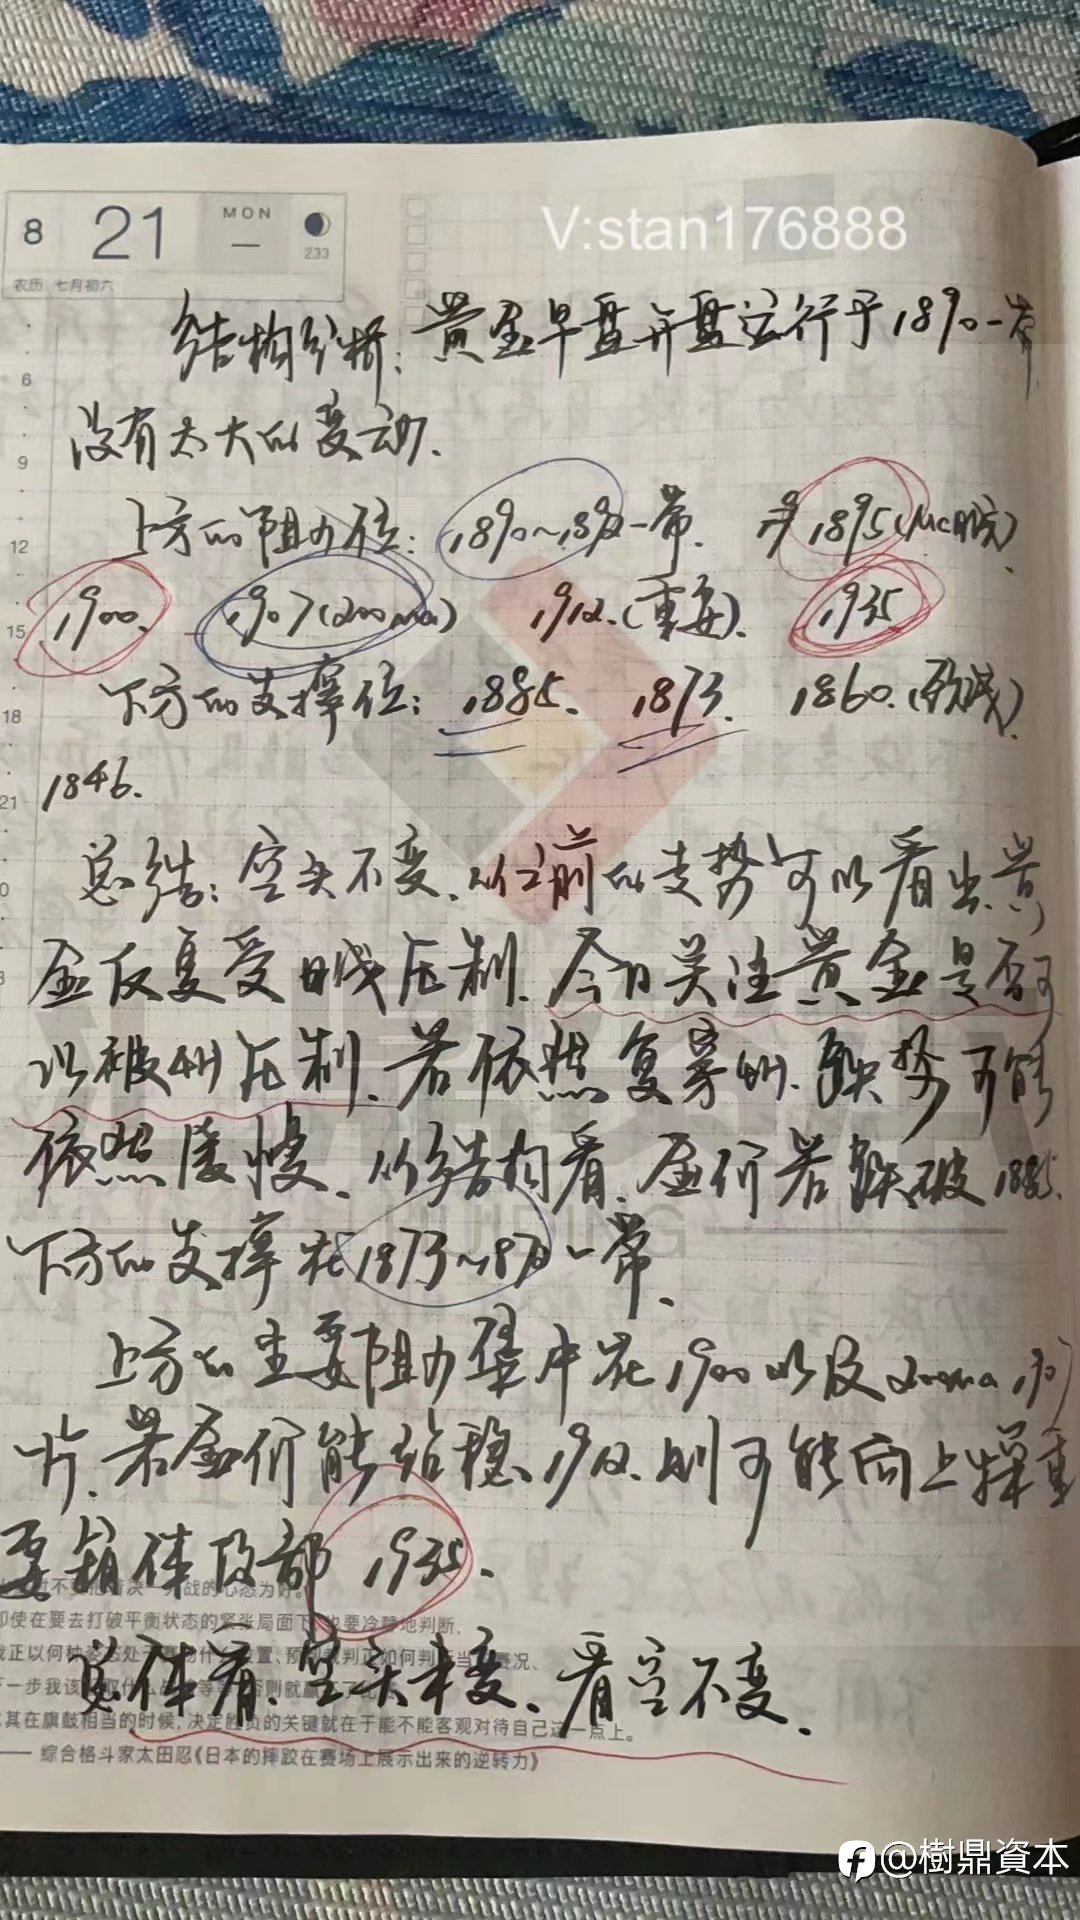 8 21 MON 一 233
农历 七月初六
V:stan176888
结构分析:黄金早盘开盘运行于1890一带
没有太大的变动.
上方的阻力位: 1890~1892一带. 1895
1900. 1907(200ma) 1912.(重要). 1935
下方的支撑位: 1885. 1873. 1860.
1846.
总结:空头不变.从之前的走势可以看出.黄
金反复受日线压制.今日关注黄金是否可
以被4H压制.若依然复穿4H.跌势可能
依照缓慢.从结构看.金价若跌破1885.
下方的支撑在1873~1870一带.
上方的主要阻力集中在1900以及200ma 1907
一片.若金价能站稳1912.则可能向上探重
要箱体顶部1935.
即使在要去打破平衡状态的紧张局面下,也要冷静地判断.
其在旗鼓相当的时候,决定胜负的关键就在于能不能客观对待自己这一点上。
总体看.空头未变.看空不变.
—— 综合格斗家太田忍《日本的摔跤在赛场上展示出来的逆转力》
6
9
12
15
18
21
SHUDING
@樹鼎資本